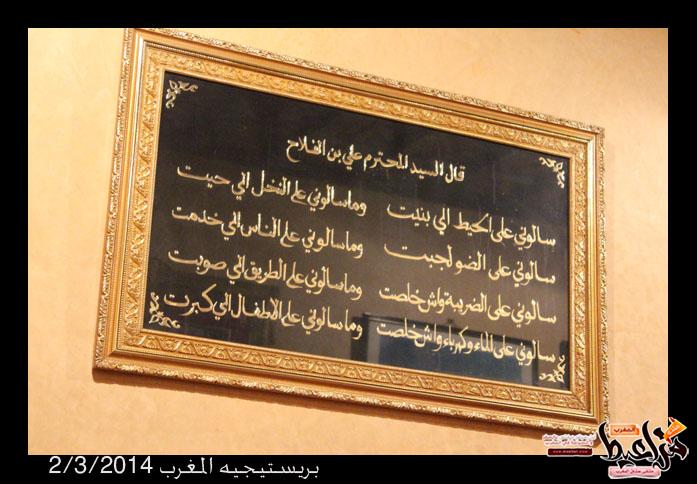 قال السيد المحترم علي بن الفلاح
سالوني على الحيط الي بنيت وما سالوني على النخل الي حييت
سالوني على الضو لجبت وما سالوني على الناس الي خدمت
سالوني على الضريبة واش خلصت وما سالوني على الطريق الي صوبت
سالوني على الماء وكهرباء واش خلصت وما سالوني على الأطفال الي كبرت
المغرب
www.mzaiet.com
بريستيجيه المغرب 2/3/2014